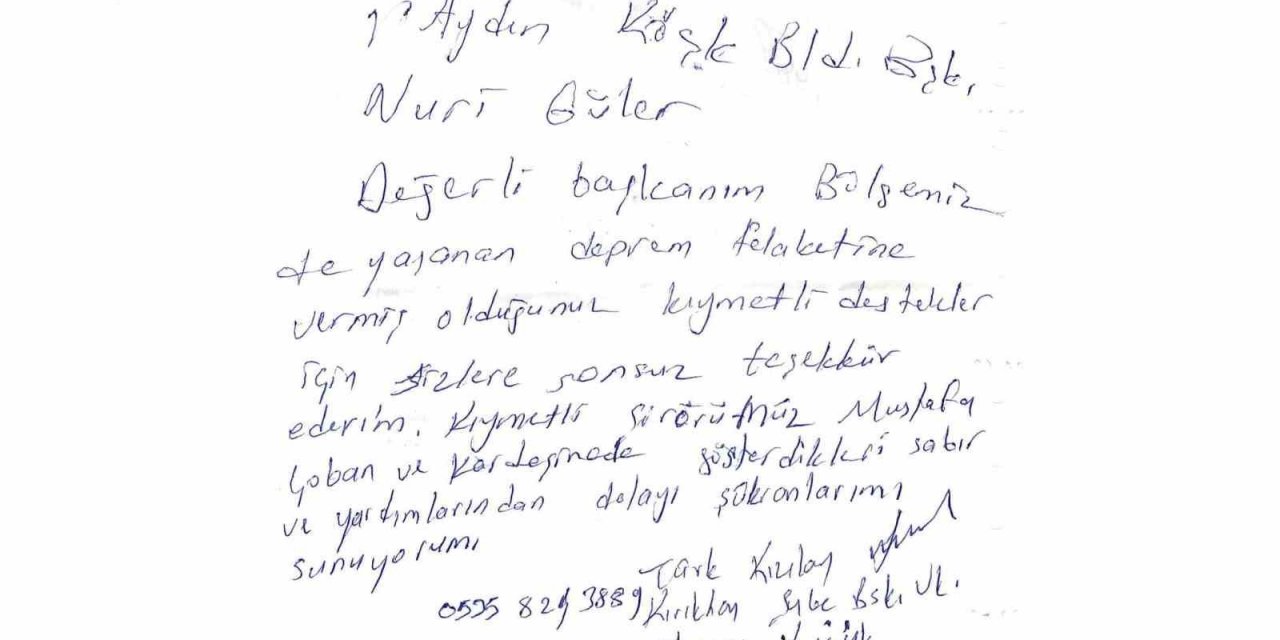 Aydın Köşk Bld. Bşk.
Nuri Güler
Değerli başkanım Bölgemiz
de yaşanan deprem felaketine
vermiş olduğunuz kıymetli destekler
için sizlere sonsuz teşekkür
ederim. Kıymetli şöförümüz Mustafa
Çoban ve kardeşinede gösterdikleri sabır
ve yardımlarından dolayı şükranlarımı
sunuyorum
Türk Kızılay
0535 829 3889 Kırıkhan Şube Bşk. Vk.